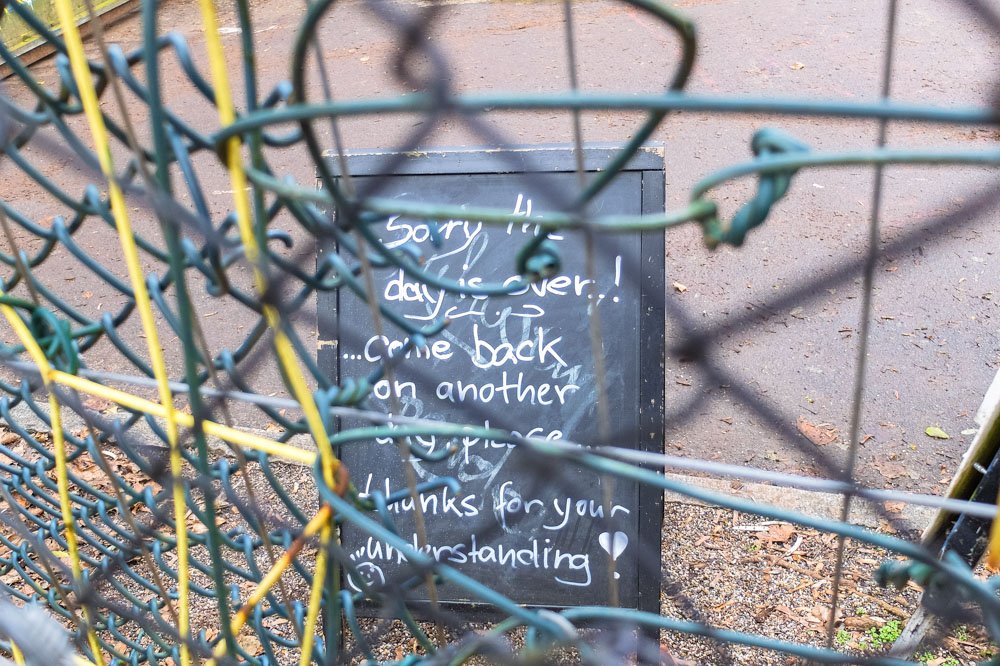 Sorry the
day is over..!
...come back
on another
day, please...
thanks for your
...understanding!